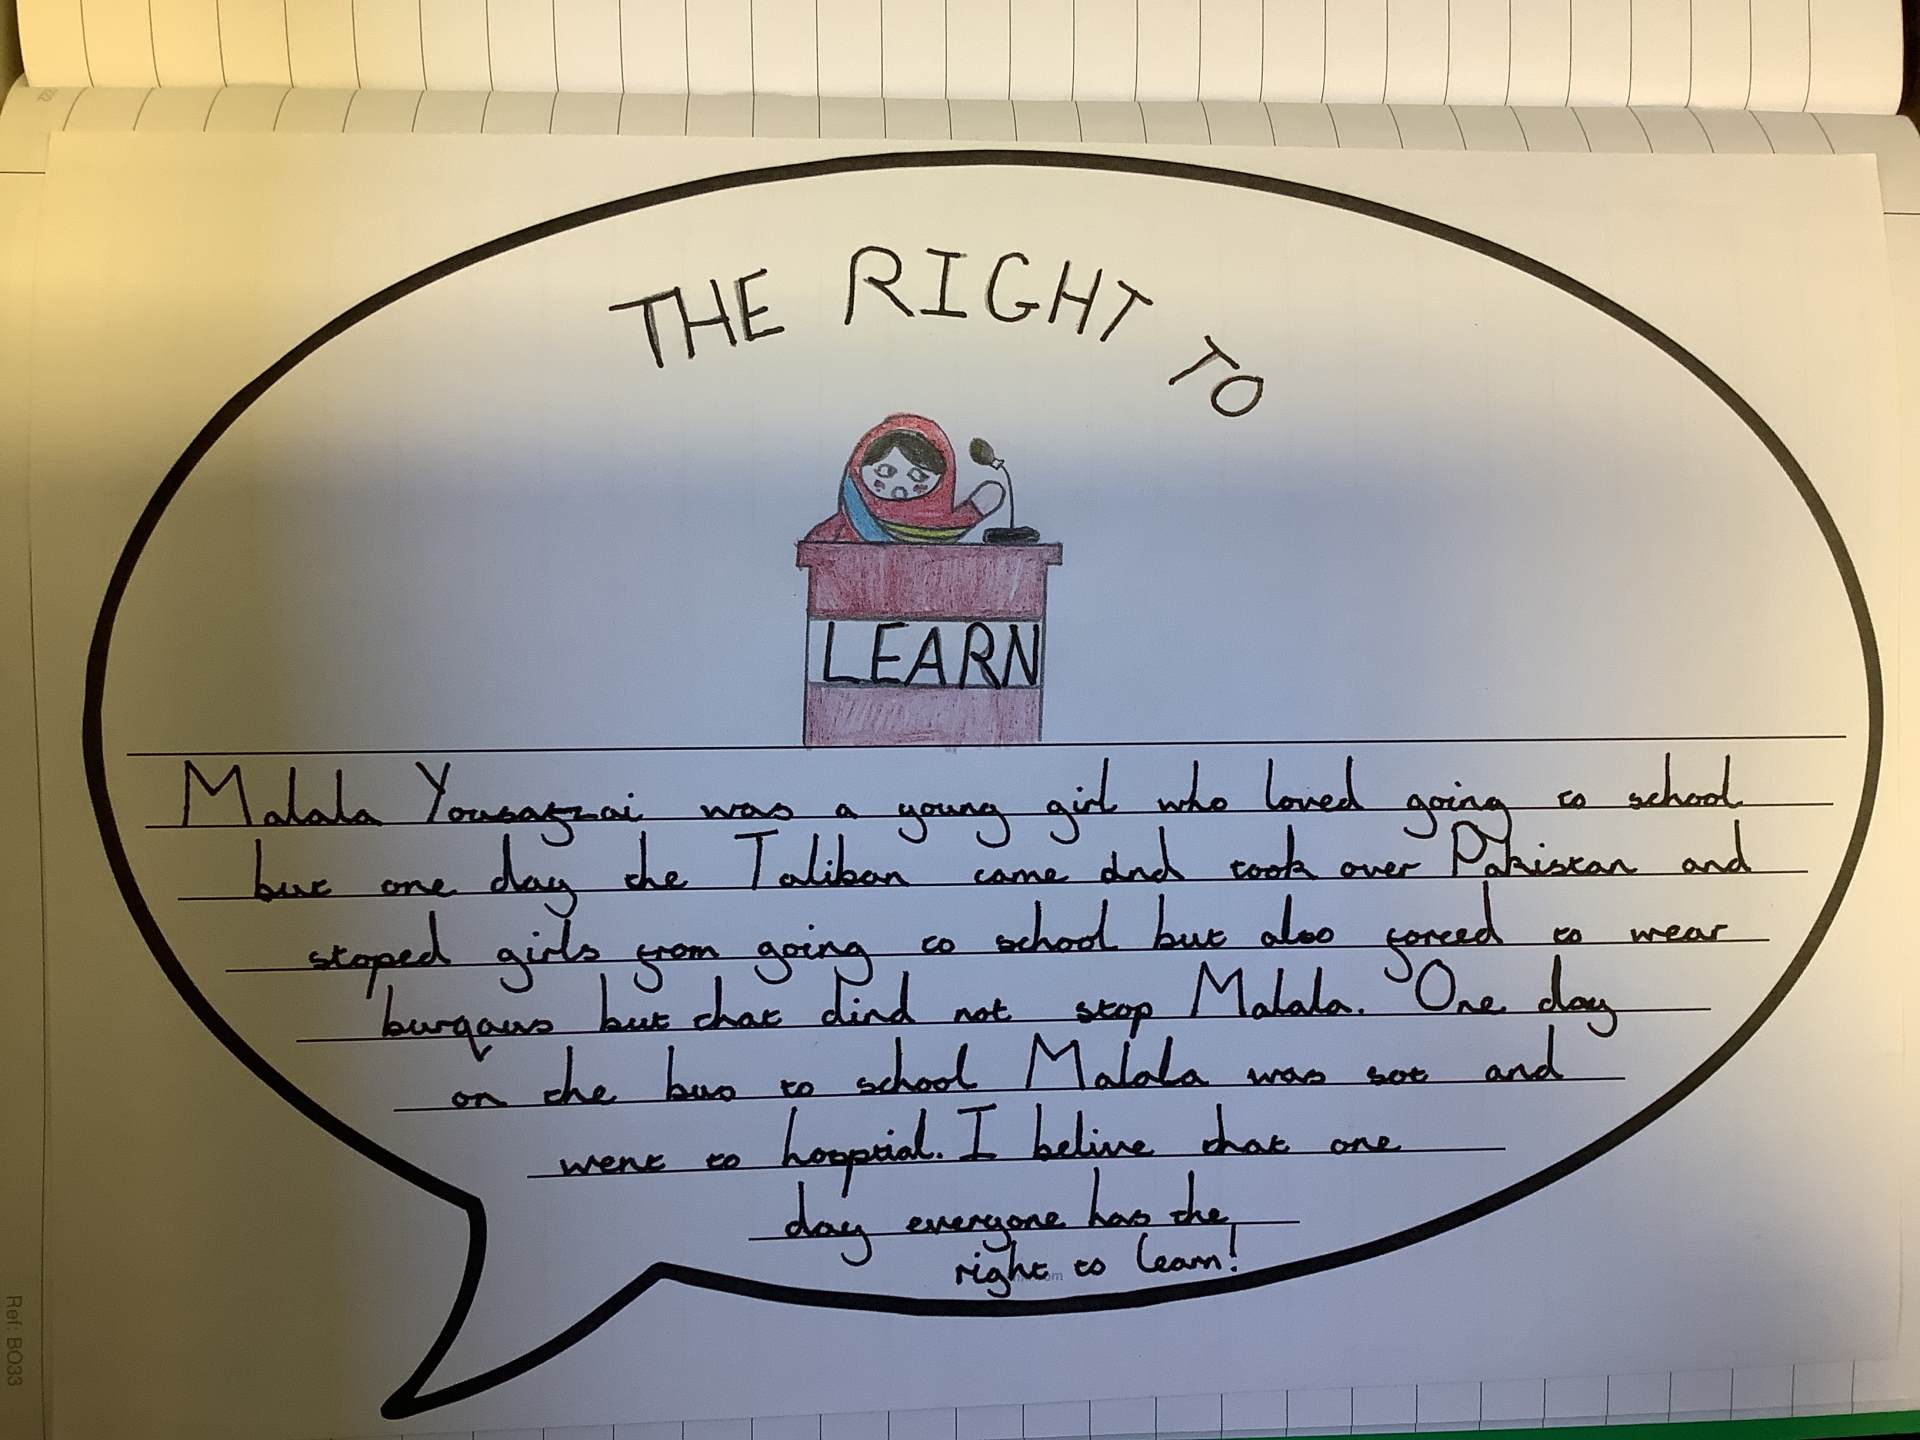 THE RIGHT TO
LEARN
Malala Yousafzai was a young girl who loved going to school
but one day the Taliban came and took over Pakistan and
stoped girls from going to school but also forced to wear
burqaus but that dind not stop Malala. One day
on the bus to school Malala was sot and
went to hosptial. I belive that one
day everyone has the
right to learn!
Ref: BO33